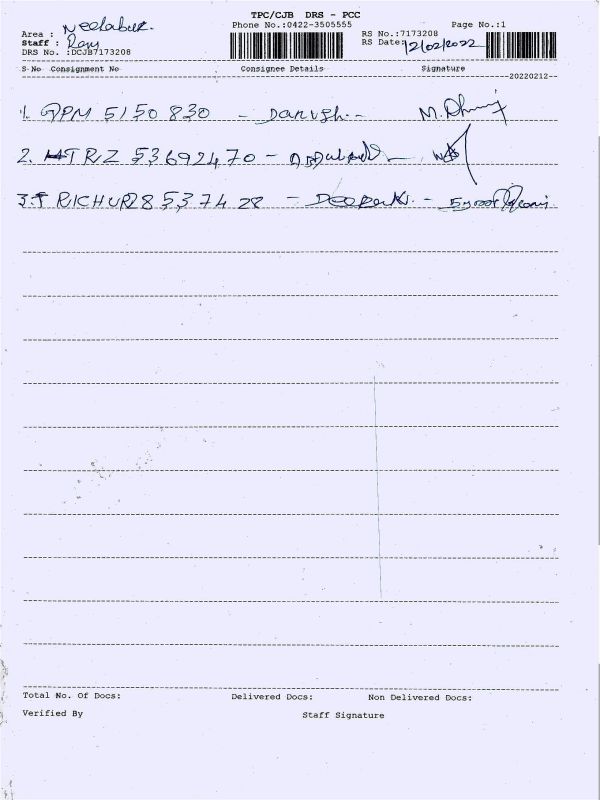 TPC/CJB DRS - PCC
Phone No.:0422-3505555
Page No.:1
Area :
Staff : Ramy
DRS No. :DCJB7173208
RS No.:7173208
RS Date: 12/02/2022
S No Consignment No Consignee Details Signature
20220212
1. QPM 5150 830 - Danush.-
2. TRZ 53692470 -
3. TRICHUR 28 537428 - Deepak. -
Total No. Of Docs: Delivered Docs: Non Delivered Docs:
Verified By Staff Signature